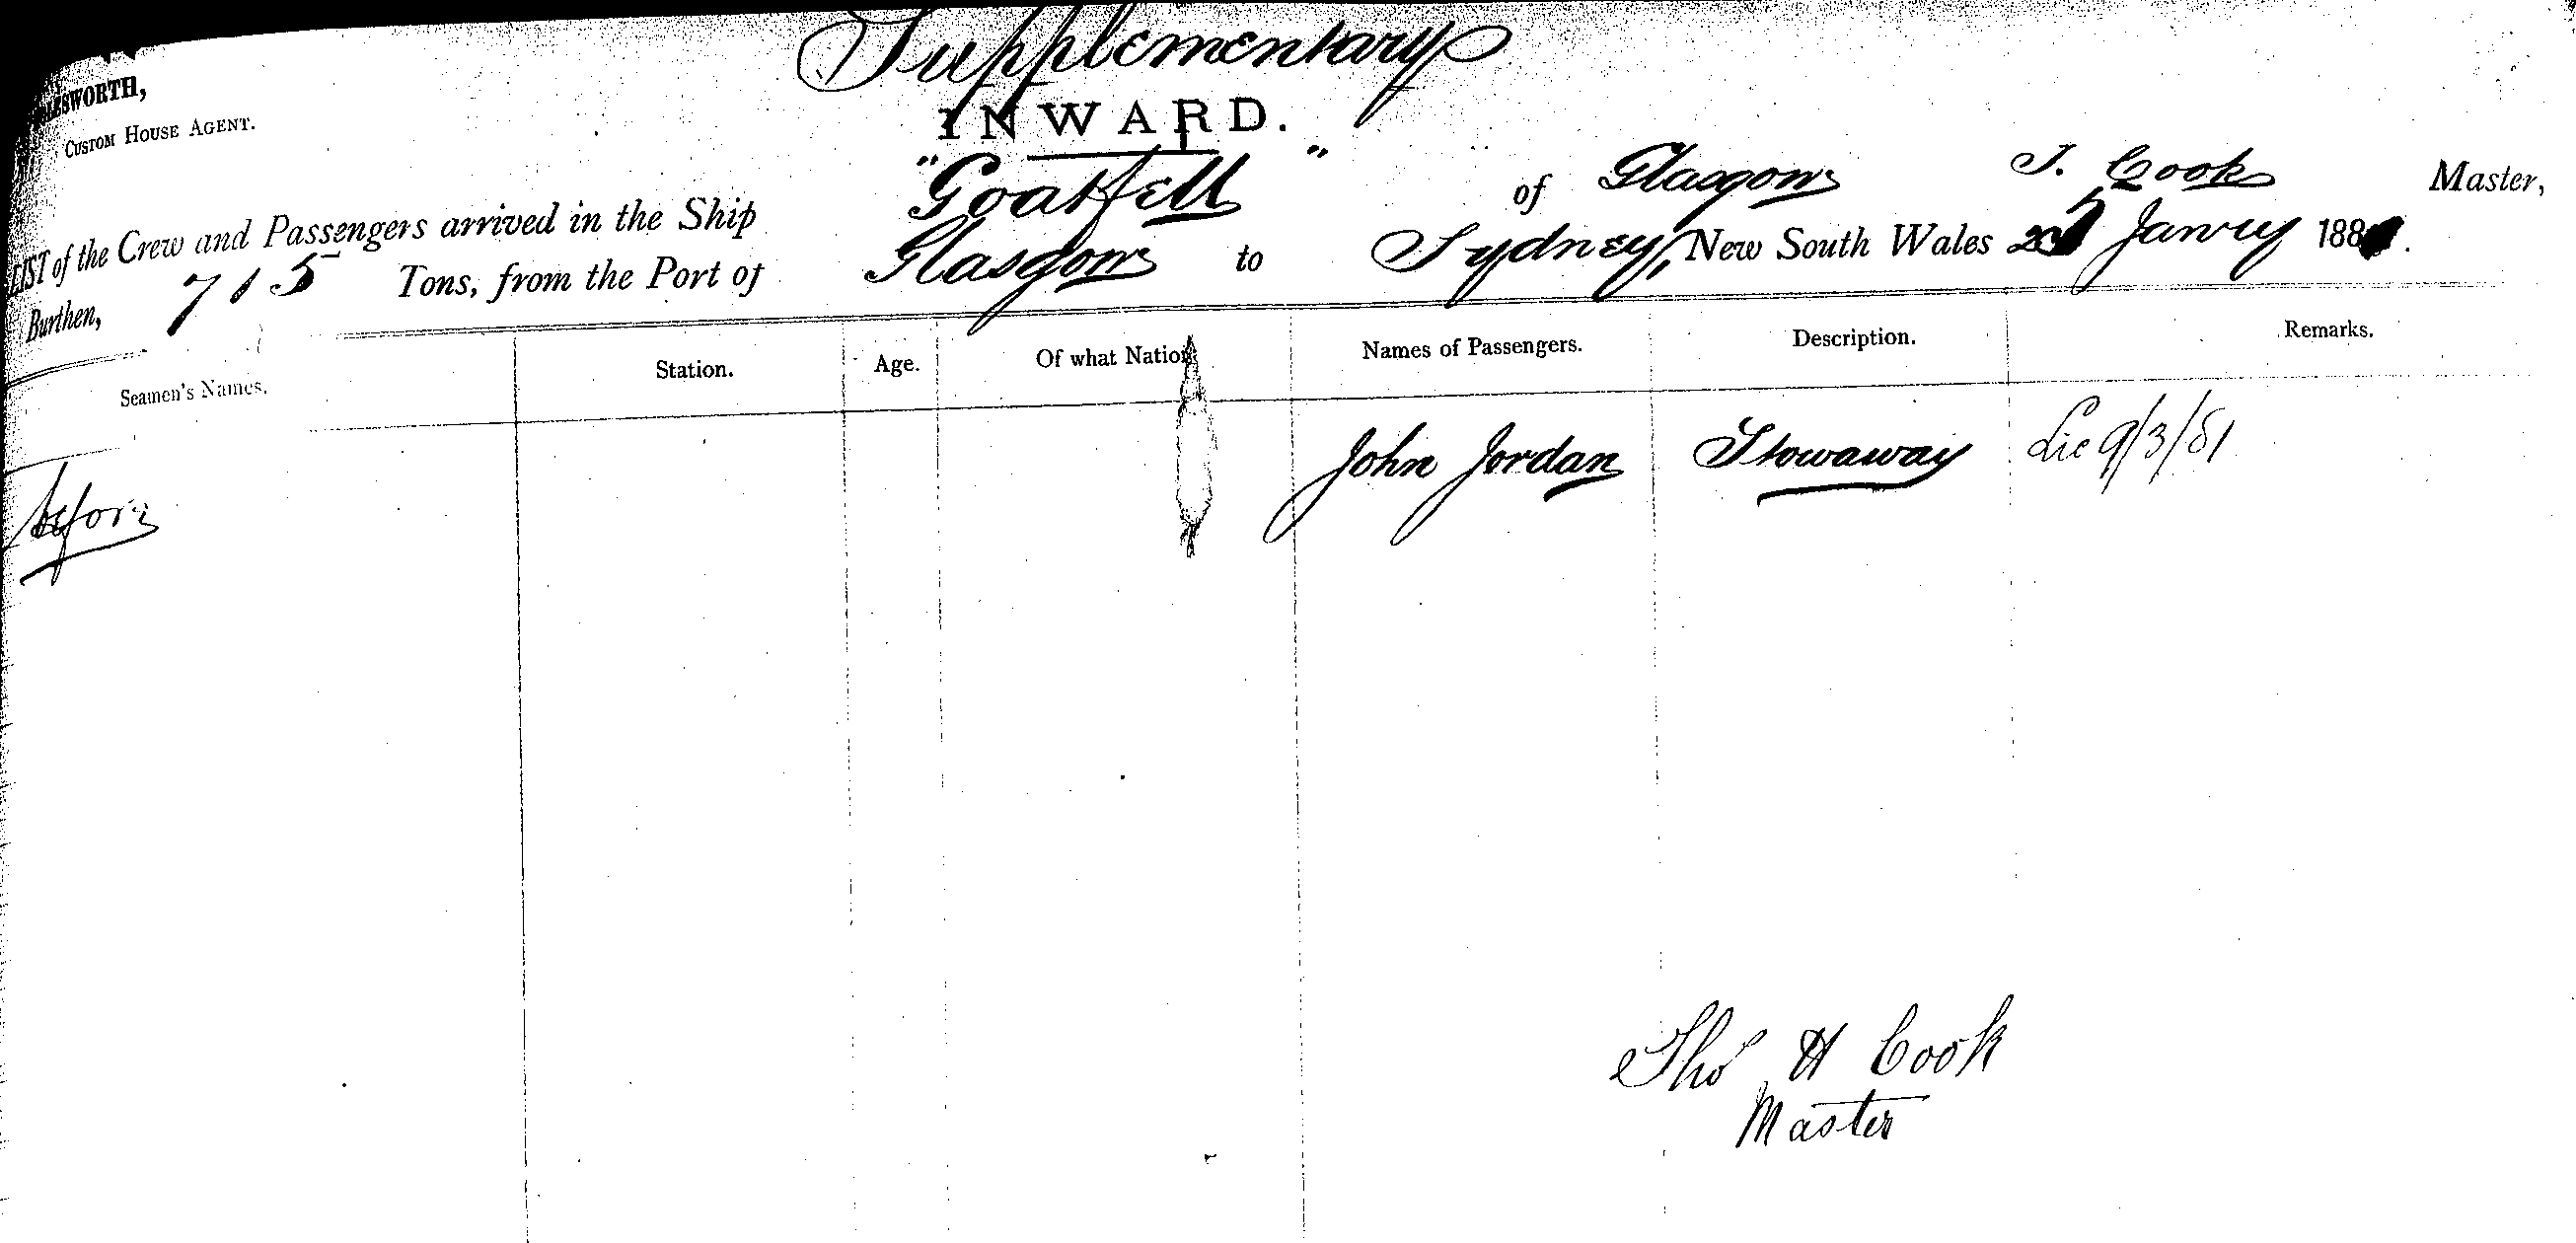 Supplementary
INWARD.
CUSTOM HOUSE AGENT.
LIST of the Crew and Passengers arrived in the Ship "Goatfell" of Glasgow T. Cook Master,
Burthen, 715 Tons, from the Port of Glasgow to Sydney, New South Wales Janury 188
Seamen's Names. Station. Age. Of what Nation Names of Passengers. Description. Remarks.
before John Jordan Stowaway Lie 9/3/81
Thos H Cook
Master